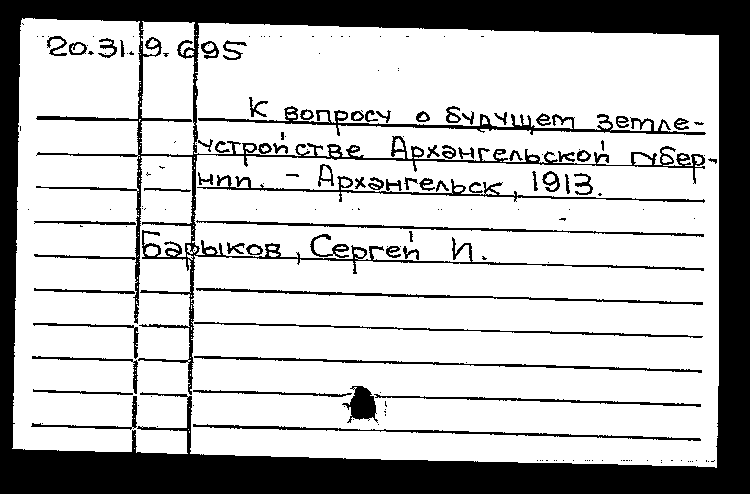 20.31.9.695
К вопросу о будущем земле-
устройстве Архангельской губер-
нии. - Архангельск, 1913.
Барыков, Сергей И.